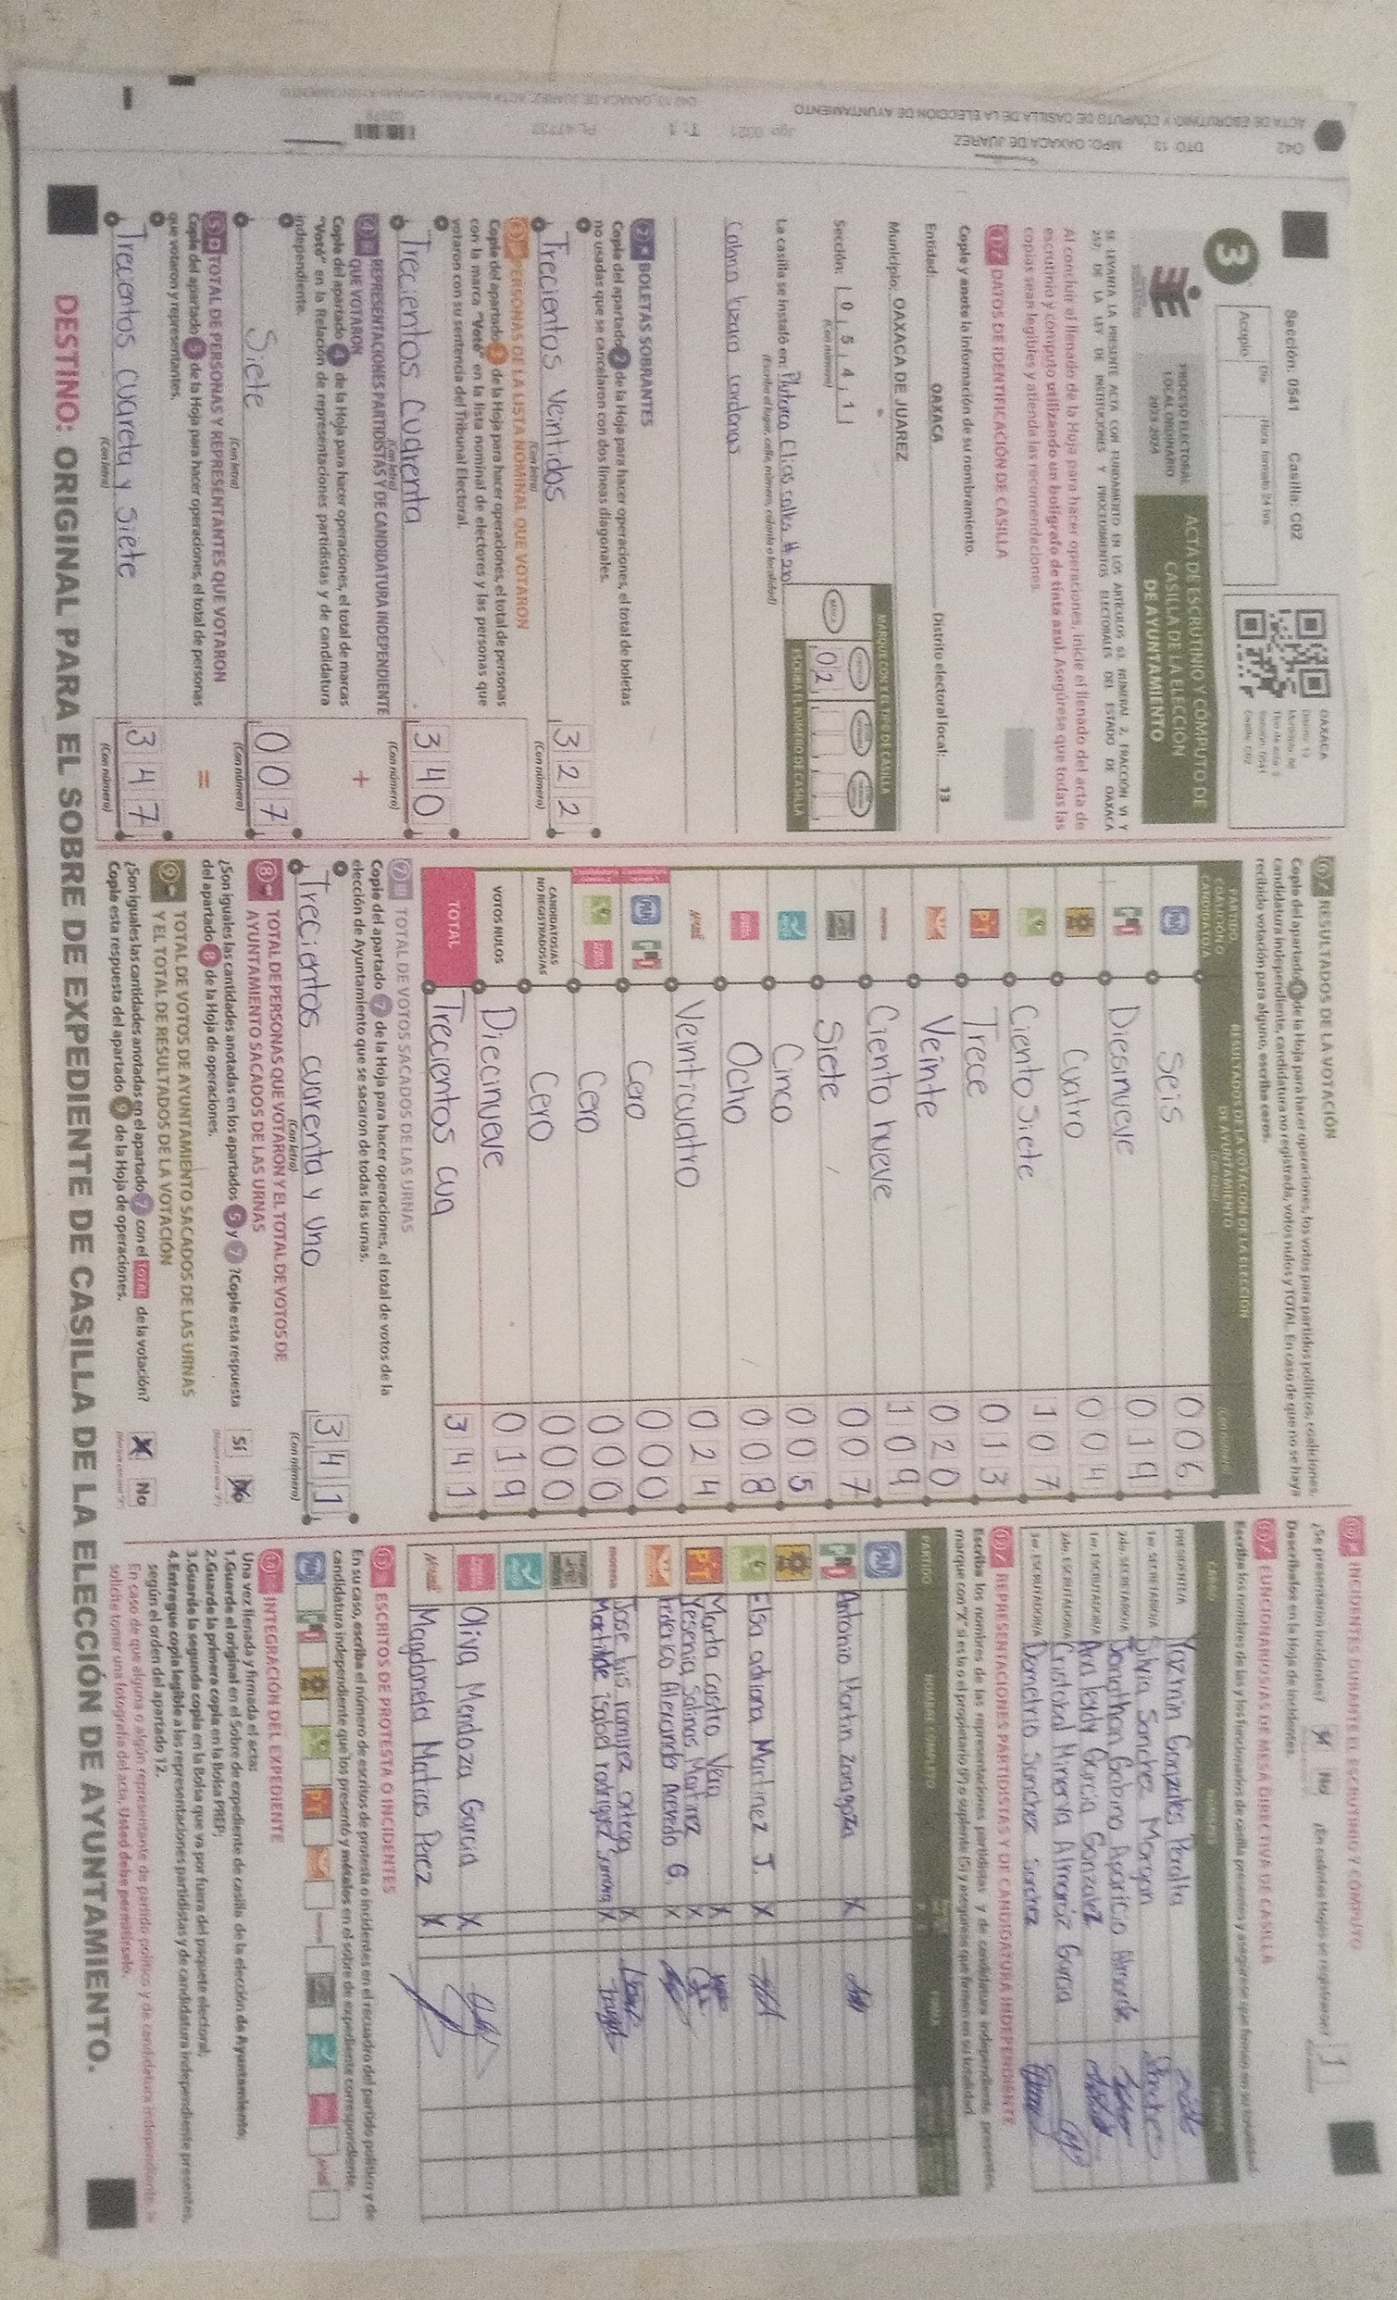 Sección: 0541 Casilla: C02
OAXACA
3
Acopio
Día
Hora formato 24 hrs
PROCESO ELECTORAL
LOCAL ORDINARIO
2023-2024
ACTA DE ESCRUTINIO Y CÓMPUTO DE
CASILLA DE LA ELECCIÓN
DE AYUNTAMIENTO
SE LEVANTA LA PRESENTE ACTA CON FUNDAMENTO EN LOS ARTÍCULOS 63, NUMERAL 2, FRACCIÓN VI Y
257, DE LA LEY DE INSTITUCIONES Y PROCEDIMIENTOS ELECTORALES DEL ESTADO DE OAXACA
Al concluir el llenado de la Hoja para hacer operaciones, inicie el llenado del acta de
escrutinio y cómputo utilizando un bolígrafo de tinta azul. Asegúrese que todas las
copias sean legibles y atienda las recomendaciones.
1 DATOS DE IDENTIFICACIÓN DE CASILLA
Copie y anote la información de su nombramiento.
Entidad: OAXACA Distrito electoral local: 13
Municipio: OAXACA DE JUAREZ
Sección: 0 5 4 1
(Con número)
MARQUE CON X EL TIPO DE CASILLA
02
ESCRIBA EL NÚMERO DE CASILLA
La casilla se instaló en: Plutarco Elias calles #
(Escriba el lugar, calle, número, colonia o localidad)
Colonia Lazaro cardenas
2 BOLETAS SOBRANTES
Copie del apartado 2 de la Hoja para hacer operaciones, el total de boletas
no usadas que se cancelaron con dos líneas diagonales.
Trecientos Veintidos 322
(Con letra) (Con número)
3 PERSONAS DE LA LISTA NOMINAL QUE VOTARON
Copie del apartado 3 de la Hoja para hacer operaciones, el total de personas
con la marca "Votó" en la lista nominal de electores y las personas que
votaron con su sentencia del Tribunal Electoral.
Trecientos Cuarenta 340
(Con letra) (Con número)
4 REPRESENTACIONES PARTIDISTAS Y DE CANDIDATURA INDEPENDIENTE
QUE VOTARON
Copie del apartado 4 de la Hoja para hacer operaciones, el total de marcas
"Votó" en la Relación de representaciones partidistas y de candidatura
independiente.
+
Siete 007
(Con letra) (Con número)
5 TOTAL DE PERSONAS Y REPRESENTANTES QUE VOTARON
Copie del apartado 5 de la Hoja para hacer operaciones, el total de personas
que votaron y representantes.
=
Trecientos cuareta y siete 347
(Con letra) (Con número)
6 RESULTADOS DE LA VOTACIÓN
Copie del apartado de la Hoja para hacer operaciones, los votos para partidos políticos, coaliciones,
candidatura independiente, candidatura no registrada, votos nulos y TOTAL. En caso de que no se haya
recibido votación para alguno, escriba ceros.
PARTIDO, COALICIÓN O CANDIDATO/A
RESULTADOS DE LA VOTACIÓN DE LA ELECCIÓN
DE AYUNTAMIENTO
PAN Seis 006
PRI Diesinueve 019
Cuatro 004
Ciento Siete 107
PT Trece 013
Veinte 020
morena Ciento nueve 109
Siete 007
Cinco 005
Ocho 008
Veinticuatro 024
PAN PRI Cero 000
Cero 000
CANDIDATOS/AS NO REGISTRADOS/AS Cero 000
VOTOS NULOS Diecinueve 019
TOTAL Trecientos cua 341
7 TOTAL DE VOTOS SACADOS DE LAS URNAS
Copie del apartado 7 de la Hoja para hacer operaciones, el total de votos de la
elección de Ayuntamiento que se sacaron de todas las urnas.
Trecientos cuarenta y Uno 341
(Con letra) (Con número)
8 TOTAL DE PERSONAS QUE VOTARON Y EL TOTAL DE VOTOS DE
AYUNTAMIENTO SACADOS DE LAS URNAS
¿Son iguales las cantidades anotadas en los apartados 5 y 7? Copie esta respuesta
del apartado 8 de la Hoja de operaciones.
Sí No
9 TOTAL DE VOTOS DE AYUNTAMIENTO SACADOS DE LAS URNAS
Y EL TOTAL DE RESULTADOS DE LA VOTACIÓN
¿Son iguales las cantidades anotadas en el apartado 7 con el TOTAL de la votación?
Copie esta respuesta del apartado 9 de la Hoja de operaciones.
No
10 INCIDENTES DURANTE EL ESCRUTINIO Y CÓMPUTO
¿Se presentaron incidentes? No ¿En cuántas Hojas se registraron? 1
Descríbalos en la Hoja de incidentes.
11 FUNCIONARIOS/AS DE MESA DIRECTIVA DE CASILLA
Escriba los nombres de las y los funcionarios de casilla presentes y asegúrese que firmen en su totalidad.
PRESIDENTE/A Yazmin Gonzales Peralta
1er. SECRETARIO/A Silvia Sanchez Morgan
2do. SECRETARIO/A Jonathan Gabino Aparicio
1er. ESCRUTADOR/A Ana leidy Garcia Gonzalez
2do. ESCRUTADOR/A Cristobal Minerva Almaraz Garcia
3er. ESCRUTADOR/A Demetrio Sanchez Sanchez
12 REPRESENTACIONES PARTIDISTAS Y DE CANDIDATURA INDEPENDIENTE
Escriba los nombres de las representaciones partidistas y de candidatura independiente presentes,
marque con "X" si es la o el propietario (P) o suplente (S) y asegúrese que firmen en su totalidad.
PARTIDO NOMBRE COMPLETO FIRMAS
PAN
PRI Antonio Martin zaragoza X
Elsa adriana Martinez J. X
PT Marta Castro Vera X
Yesenia Salinas Martinez X
Federico Alexander Acevedo G. X
morena Jose luis ramirez ortega X
Martilde isabel rodriguez X
Oliva Mendoza Garcia X
Magdanela Matias Perez X
13 ESCRITOS DE PROTESTA O INCIDENTES
En su caso, escriba el número de escritos de protesta o incidentes en el recuadro del partido político y de
candidatura independiente que los presentó y métalos en el sobre de expediente correspondiente.
14 INTEGRACIÓN DEL EXPEDIENTE
Una vez llenada y firmada el acta:
1.Guarde el original en el Sobre de expediente de casilla de la elección de Ayuntamiento;
2.Guarde la primera copia en la Bolsa PREP;
3.Guarde la segunda copia en la Bolsa que va por fuera del paquete electoral;
4.Entregue copia legible a las representaciones partidistas y de candidatura independiente presentes,
según el orden del apartado 12.
En caso de que alguna o algún representante de partido político y de candidatura independiente, le
solicite tomar una fotografía del acta, Usted debe permitírselo.
DESTINO: ORIGINAL PARA EL SOBRE DE EXPEDIENTE DE CASILLA DE LA ELECCIÓN DE AYUNTAMIENTO.
042 DTO 13 MPO: OAXACA DE JUAREZ
ACTA DE ESCRUTINIO Y CÓMPUTO DE CASILLA DE LA ELECCIÓN DE AYUNTAMIENTO